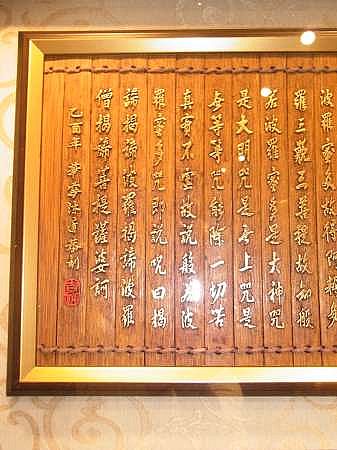 波羅蜜多故得阿耨多
羅三藐三菩提故知般
若波羅蜜多是大神咒
是大明咒是无上咒是
无等等咒能除一切苦
真實不虛故說般若波
羅蜜多咒即說咒曰揭
諦揭諦波羅揭諦波羅
僧揭諦菩提薩婆訶
乙酉年